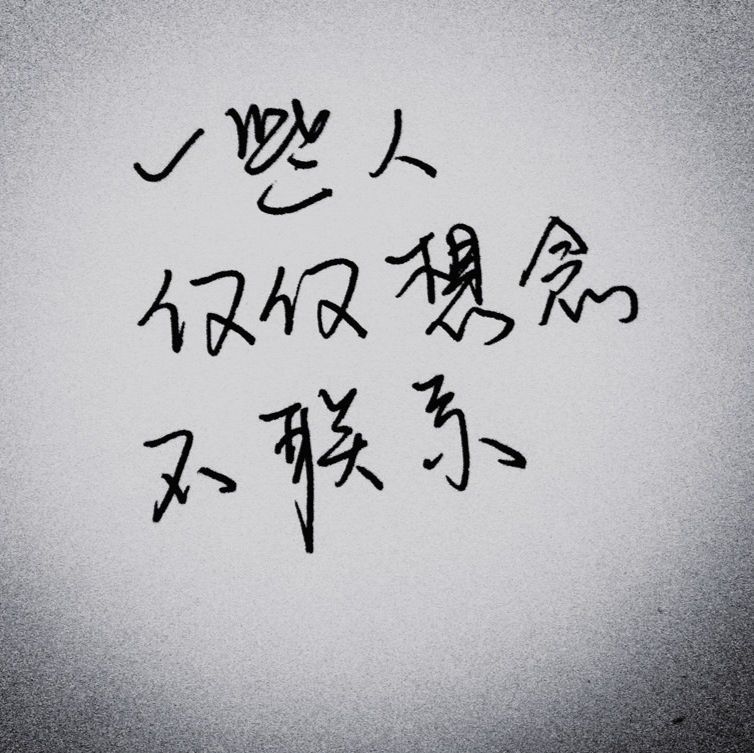 一些人
仅仅想念
不联系